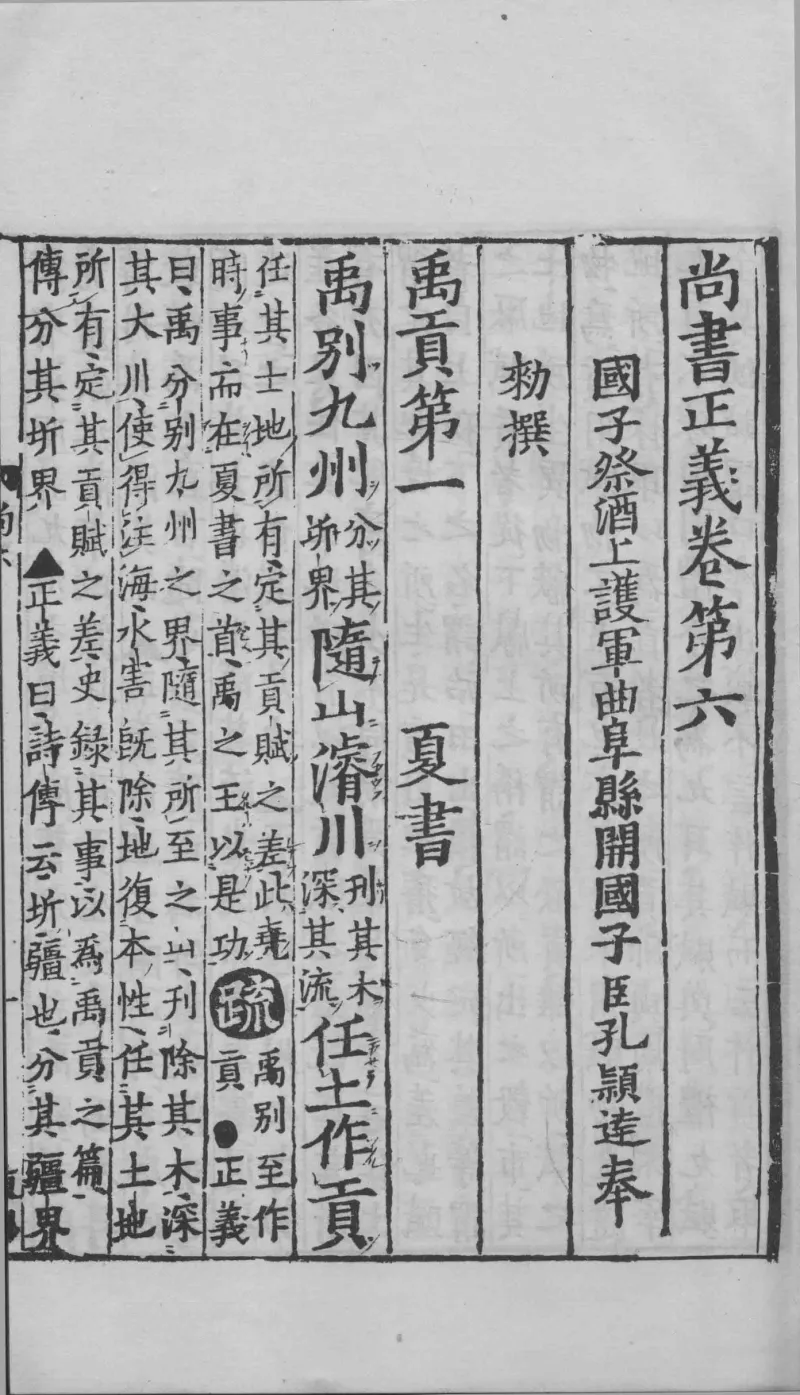 尚書正義卷第六
國子祭酒上護軍曲阜縣開國子臣孔穎達奉
勑撰
禹貢第一　夏書
禹別九州分其圻界隨山濬川刊其木深其流任土作貢
任其土地所有定其貢賦之差此堯
時事而在夏書之首禹之王以是功
疏
禹別至作
貢●正義
曰禹分別九州之界隨其所至之山刊除其木深
其大川使得注海水害既除地復本性任其土地
所有定其貢賦之差史錄其事以為禹貢之篇
傳分其圻界▲正義曰詩傳云圻疆也分其疆界